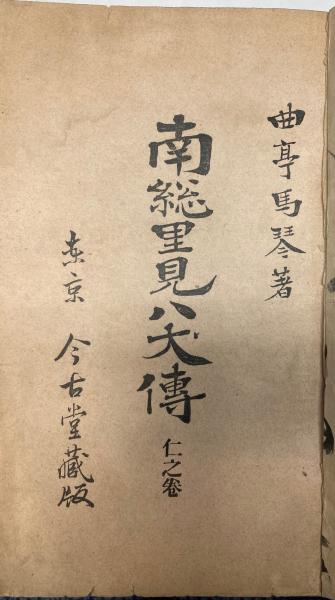 曲亭馬琴著
南総里見八犬傳 仁之卷
東京 今古堂藏版